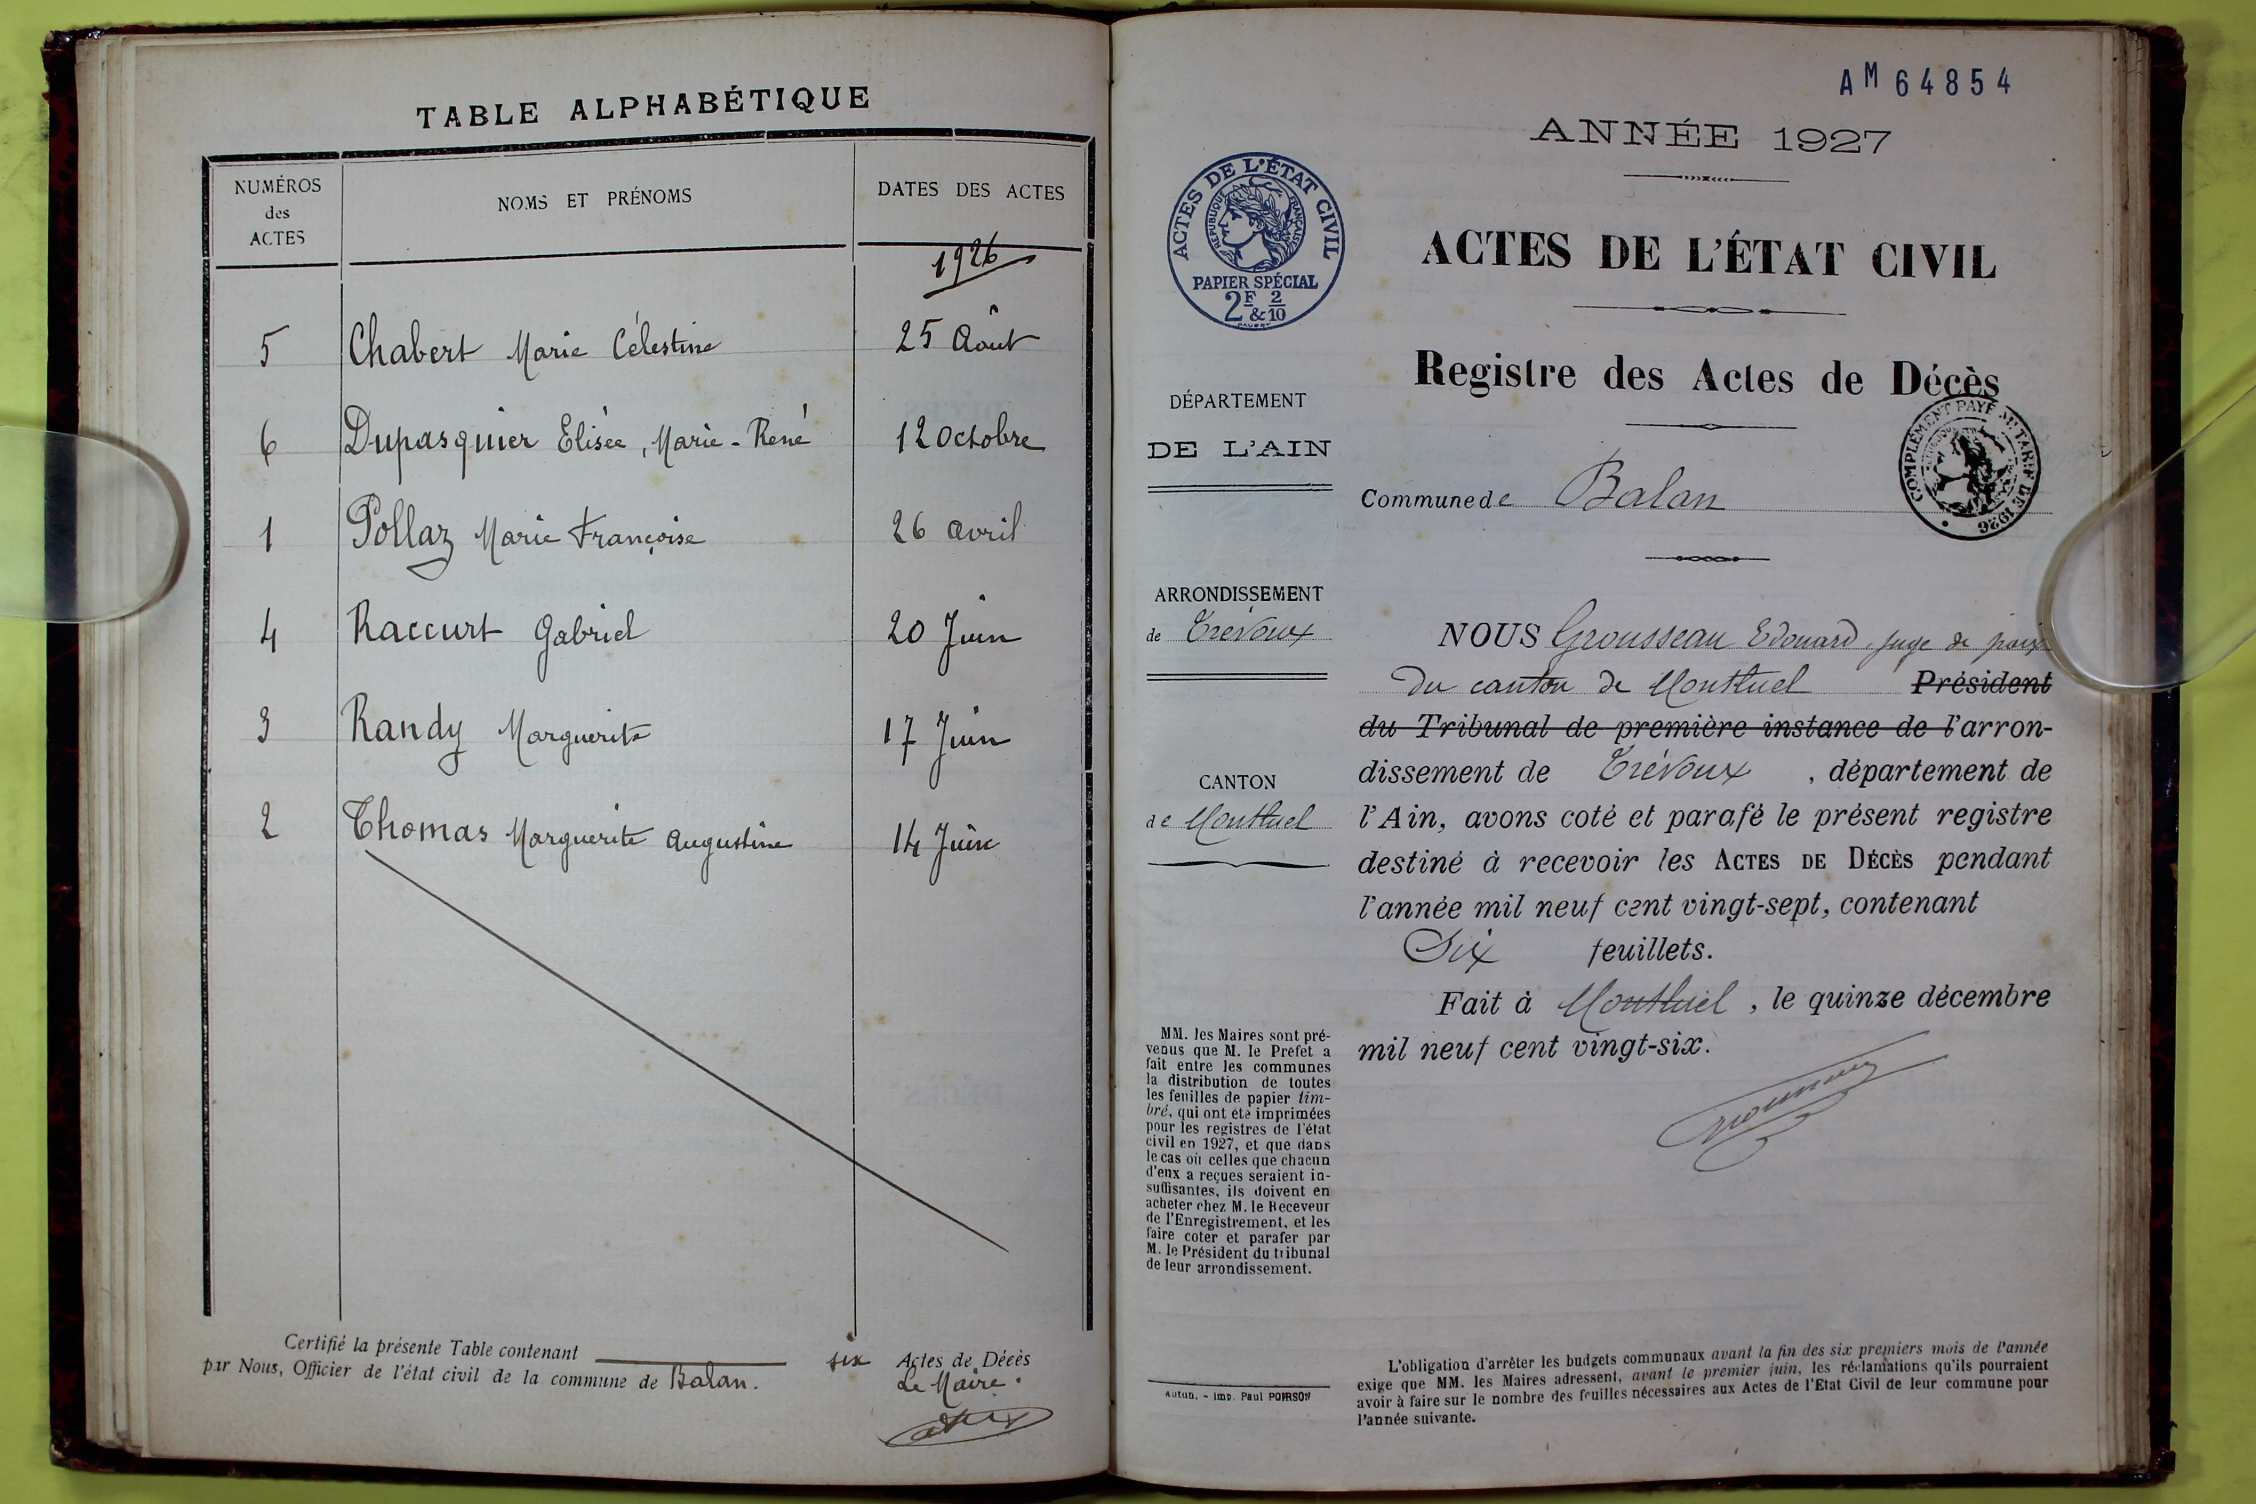 TABLE ALPHABÉTIQUE
NUMÉROS
des
ACTES
NOMS ET PRÉNOMS
DATES DES ACTES
1926
5 Chabert Marie Célestine 25 Août
6 Dupasquier Elisée, Marie-René 12 Octobre
1 Pollaz Marie Françoise 26 avril
4 Raccurt Gabriel 20 Juin
3 Randy Marguerite 17 Juin
2 Thomas Marguerite Augustine 14 Juin
Certifié la présente Table contenant six Actes de Décès
par Nous, Officier de l'état civil de la commune de Balan.
Le Maire.
AM 64854
ANNÉE 1927
ACTES DE L'ÉTAT CIVIL
RÉPUBLIQUE FRANÇAISE
PAPIER SPÉCIAL
2F & 2/10
ACTES DE L'ÉTAT CIVIL
Registre des Actes de Décès
COMPLÉMENT PAYÉ AU TARIF DE 1926
Commune de Balan
DÉPARTEMENT
DE L'AIN
ARRONDISSEMENT
de Trévoux
CANTON
de Montluel
NOUS Grousseau Edouard, juge de paix
du canton de Montluel Président
du Tribunal de première instance de l'arron-
dissement de Trévoux, département de
l'Ain, avons coté et parafé le présent registre
destiné à recevoir les ACTES DE DÉCÈS pendant
l'année mil neuf cent vingt-sept, contenant
Six feuillets.
Fait à Montluel, le quinze décembre
mil neuf cent vingt-six.
MM. les Maires sont pré-
venus que M. le Préfet a
fait entre les communes
la distribution de toutes
les feuilles de papier tim-
bré, qui ont été imprimées
pour les registres de l'état
civil en 1927, et que dans
le cas où celles que chacun
d'eux a reçues seraient in-
suffisantes, ils doivent en
acheter chez M. le Receveur
de l'Enregistrement, et les
faire coter et parafer par
M. le Président du tribunal
de leur arrondissement.
Autun. - Imp. Paul POIRSON
L'obligation d'arrêter les budgets communaux avant la fin des six premiers mois de l'année
exige que MM. les Maires adressent, avant le premier juin, les réclamations qu'ils pourraient
avoir à faire sur le nombre des feuilles nécessaires aux Actes de l'Etat Civil de leur commune pour
l'année suivante.